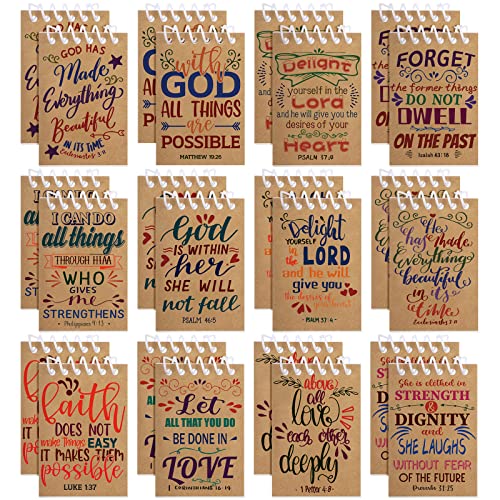 GOD HAS
Made
Everything
Beautiful
IN ITS TIME
Ecclesiastes 3:11
with
GOD
ALL THINGS
are
POSSIBLE
MATTHEW 19:26
Delight
yourself in the
Lord
and he will give you the
desires of your
Heart
PSALM 37:4
FORGET
the former things
DO NOT
DWELL
ON THE PAST
Isaiah 43:18
I CAN DO
all things
THROUGH HIM
WHO
GIVES
me
STRENGTHENS
Philippians 4:13
God
IS WITHIN
her
SHE WILL
not fall
PSALM 46:5
Delight
YOURSELF
IN THE LORD
and he will
give you
the desires of
your heart
PSALM 37:4
He
has made
Everything
beautiful
in its
time
Ecclesiastes 3:11
faith
DOES NOT
make Things EASY
IT MAKES THEM
possible
LUKE 1:37
Let
ALL THAT YOU DO
BE DONE IN
LOVE
1 CORINTHIANS 16:14
above
all
love
each other
deeply
1 Petter 4:8
She is clothed in
STRENGTH
&
DIGNITY
and
SHE LAUGHS
WITHOUT FEAR
OF THE FUTURE
Proverbs 31:25